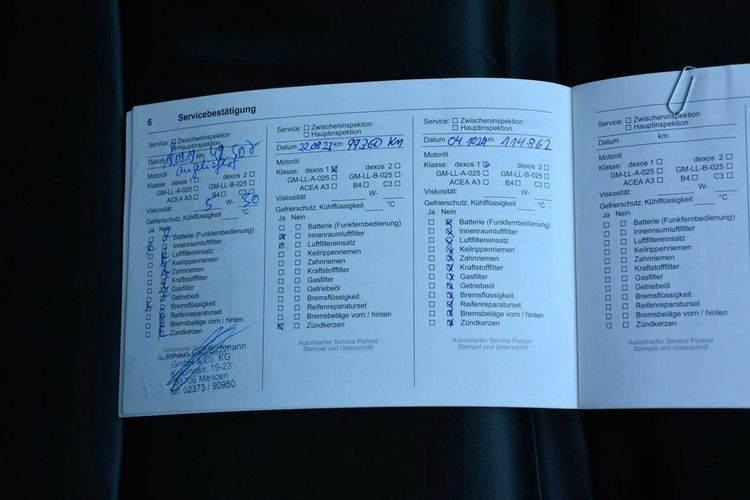 6 Servicebestätigung
Service: Zwischeninspektion
Hauptinspektion
Datum km
Motoröl
Klasse: dexos 1 dexos 2
GM-LL-A-025 GM-LL-B-025
ACEA A3 B4 C3
Viskosität: 5 W- 30
Gefrierschutz, Kühlflüssigkeit °C
Ja Nein
Batterie (Funkfernbedienung)
Innenraumluftfilter
Luftfiltereinsatz
Keilrippenriemen
Zahnriemen
Kraftstofffilter
Gasfilter
Getriebeöl
Bremsflüssigkeit
Reifenreparaturset
Bremsbeläge vorn / hinten
Zündkerzen
Autorisierter Service Partner
Autohaus
GmbH & Co. KG
19-23
Menden
Tel. 02373 / 90950
Service: Zwischeninspektion
Hauptinspektion
Datum 22.08.23 km 99360 KM
Motoröl
Klasse: dexos 1 dexos 2
GM-LL-A-025 GM-LL-B-025
ACEA A3 B4 C3
Viskosität: W-
Gefrierschutz, Kühlflüssigkeit °C
Ja Nein
Batterie (Funkfernbedienung)
Innenraumluftfilter
Luftfiltereinsatz
Keilrippenriemen
Zahnriemen
Kraftstofffilter
Gasfilter
Getriebeöl
Bremsflüssigkeit
Reifenreparaturset
Bremsbeläge vorn / hinten
Zündkerzen
Autorisierter Service Partner
Stempel und Unterschrift
Service: Zwischeninspektion
Hauptinspektion
Datum 04.1024 114862
Motoröl
Klasse: dexos 1 dexos 2
GM-LL-A-025 GM-LL-B-025
ACEA A3 B4 C3
Viskosität: W-
Gefrierschutz, Kühlflüssigkeit °C
Ja Nein
Batterie (Funkfernbedienung)
Innenraumluftfilter
Luftfiltereinsatz
Keilrippenriemen
Zahnriemen
Kraftstofffilter
Gasfilter
Getriebeöl
Bremsflüssigkeit
Reifenreparaturset
Bremsbeläge vorn / hinten
Zündkerzen
Autorisierter Service Partner
Stempel und Unterschrift
Service: Zwischeninspektion
Hauptinspektion
Datum km
Motoröl
Klasse: dexos 1 dexos 2
GM-LL-A-025 GM-LL-B-025
ACEA A3 B4 C3
Viskosität: W-
Gefrierschutz, Kühlflüssigkeit °C
Ja Nein
Batterie (Funkfernbedienung)
Innenraumluftfilter
Luftfiltereinsatz
Keilrippenriemen
Zahnriemen
Kraftstofffilter
Gasfilter
Getriebeöl
Bremsflüssigkeit
Reifenreparaturset
Bremsbeläge vorn / hinten
Zündkerzen
Autorisierter Service Partner
Stempel und Unterschrift